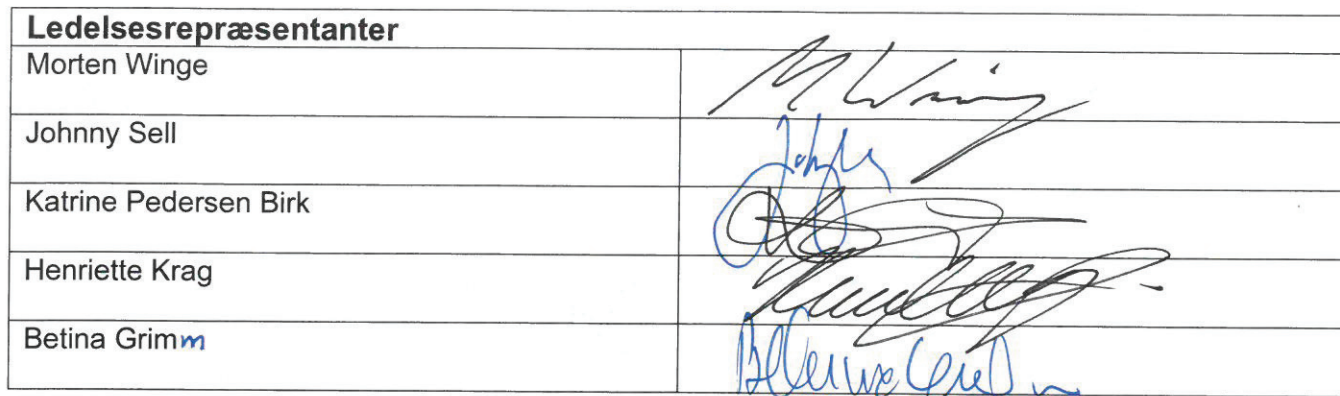 Ledelsesrepræsentanter
Morten Winge
M Wing
Johnny Sell
Johnny
Katrine Pedersen Birk
Henriette Krag
Betina Grimm